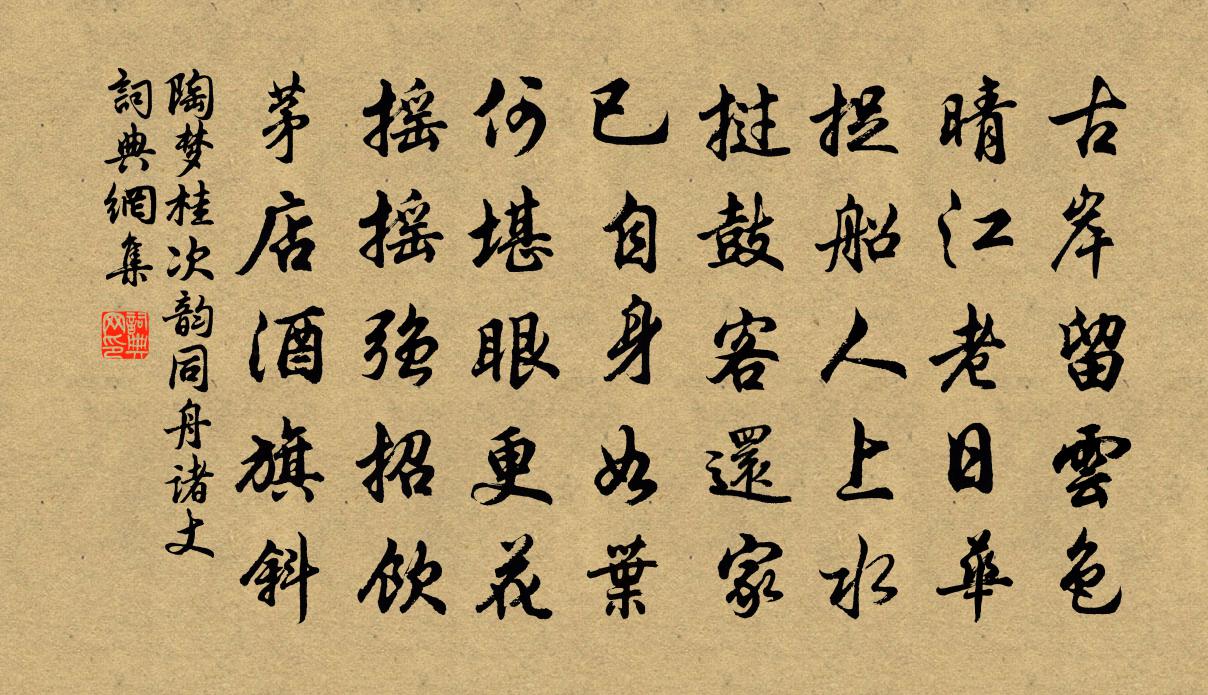 古岸留雲色
晴江老日華
捉船人上水
撾鼓客還家
已自身如葉
何堪眼更花
搖搖强招飲
茅店酒旗斜
陶梦桂次韵同舟诸丈
詞典網集
詞典网印